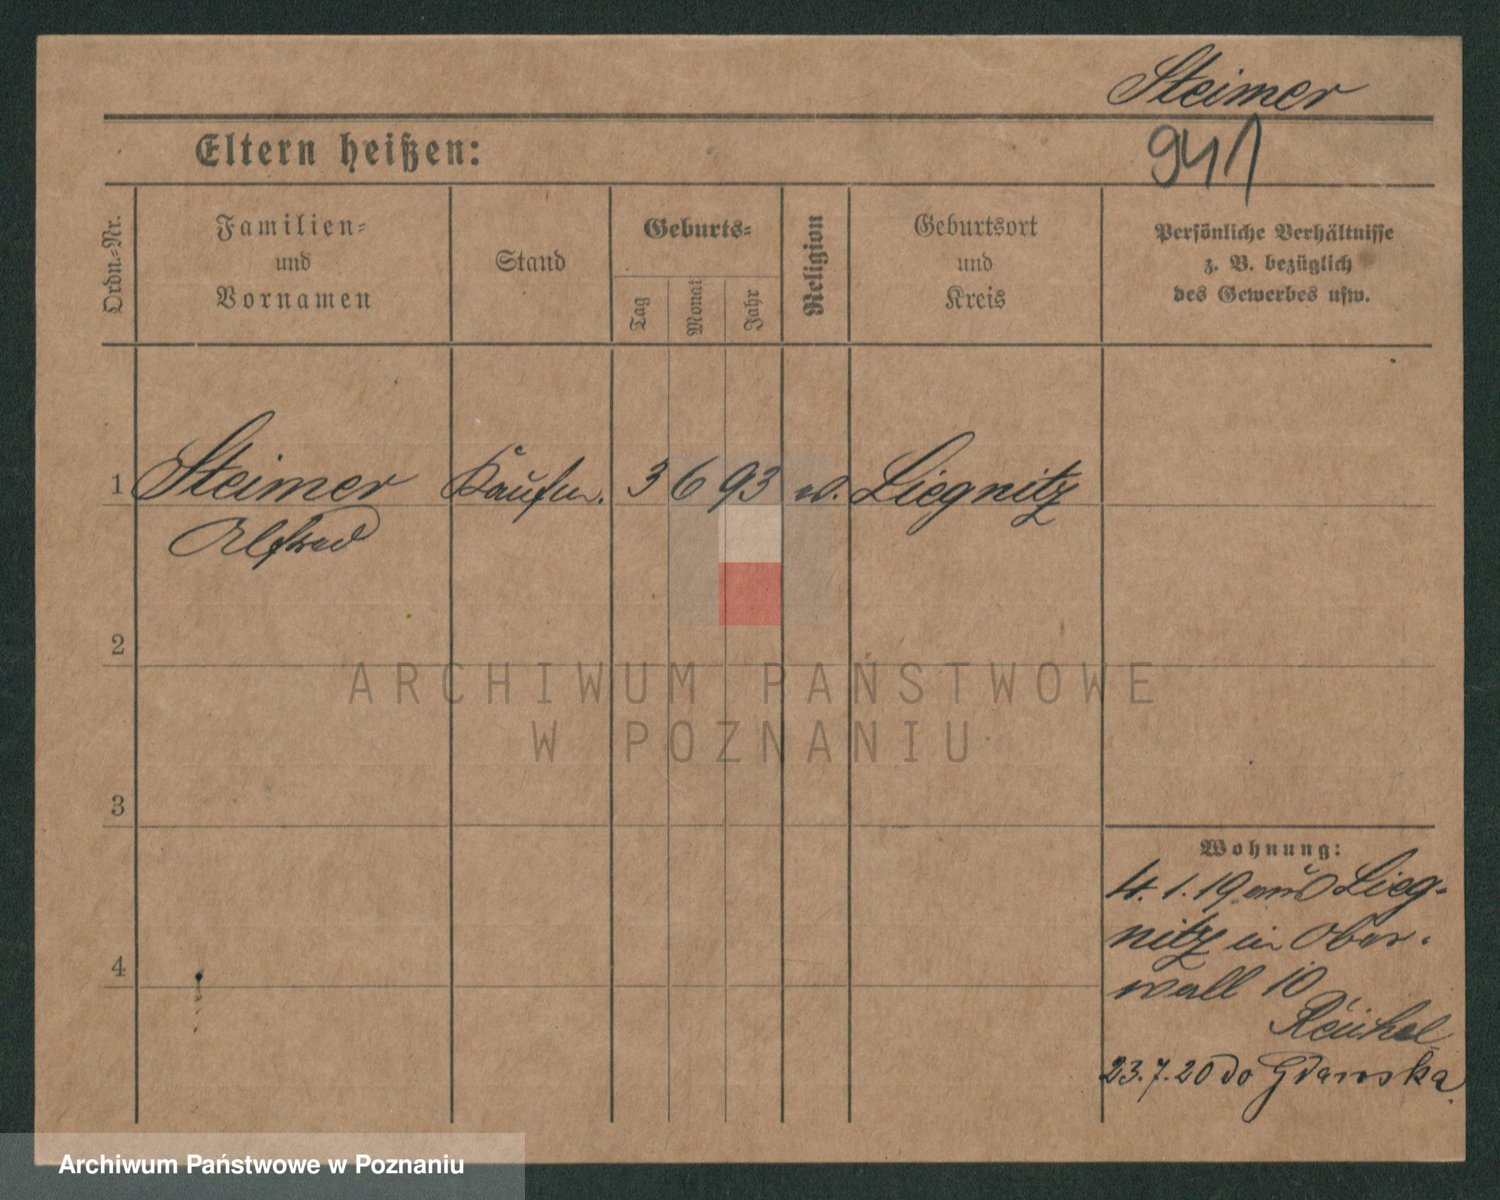 Steimer
941
Eltern heißen:
Ordn.-Nr.
Familien-
und
Vornamen
Stand
Geburts-
Tag
Monat
Jahr
Religion
Geburtsort
und
Kreis
Persönliche Verhältnisse
z. B. bezüglich
des Gewerbes usw.
1 Steimer Kaufm. 3 6 93 Liegnitz
Alfred
2
ARCHIWUM PAŃSTWOWE
W POZNANIU
3
Wohnung:
4.1.19 aus Lieg-
nitz in Ober-
wall 10
4
23.7.20 do Gdanska
Archiwum Państwowe w Poznaniu